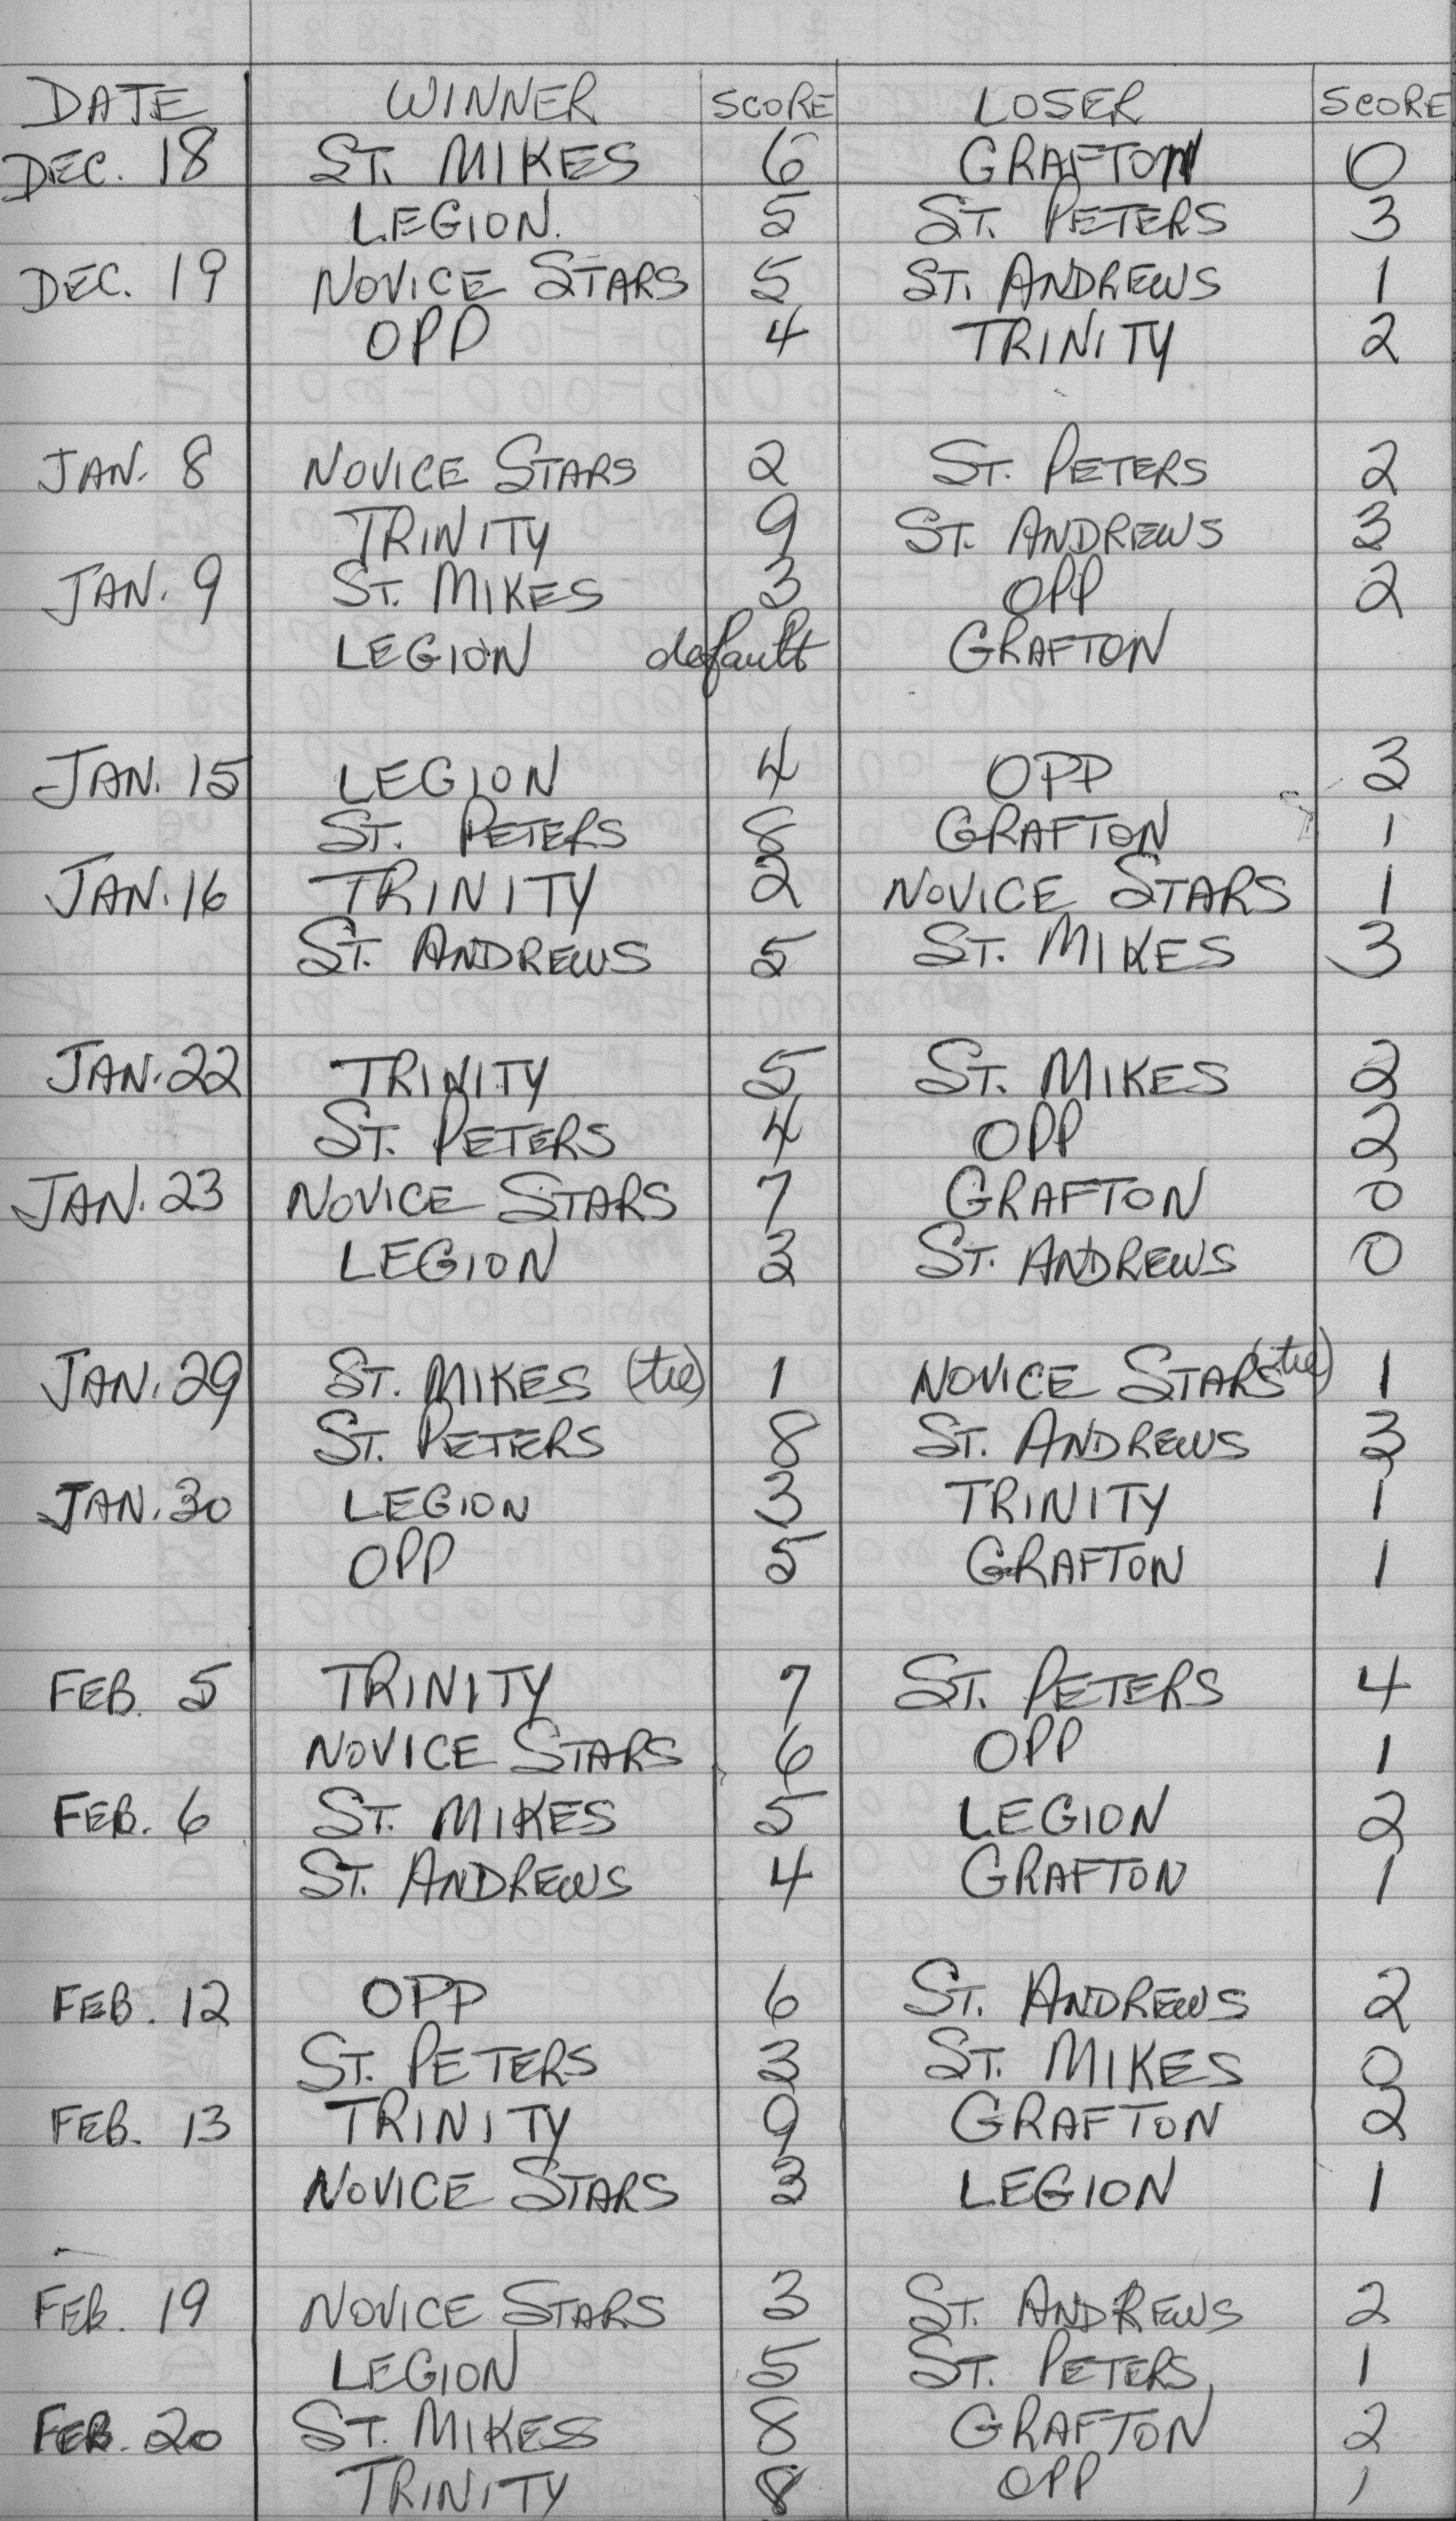 DATE WINNER SCORE LOSER SCORE
DEC. 18 ST. MIKES 6 GRAFTON 0
LEGION. 5 ST. PETERS 3
DEC. 19 NOVICE STARS 5 ST. ANDREWS 1
OPP 4 TRINITY 2
JAN. 8 NOVICE STARS 2 ST. PETERS 2
TRINITY 9 ST. ANDREWS 3
JAN. 9 ST. MIKES 3 OPP 2
LEGION default GRAFTON
JAN. 15 LEGION 4 OPP 3
ST. PETERS 8 GRAFTON 1
JAN. 16 TRINITY 2 NOVICE STARS 1
ST. ANDREWS 5 ST. MIKES 3
JAN. 22 TRINITY 5 ST. MIKES 2
ST. PETERS 4 OPP 2
JAN. 23 NOVICE STARS 7 GRAFTON 0
LEGION 3 ST. ANDREWS 0
JAN. 29 ST. MIKES (tie) 1 NOVICE STARS (tie) 1
ST. PETERS 8 ST. ANDREWS 3
JAN. 30 LEGION 3 TRINITY 1
OPP 5 GRAFTON 1
FEB. 5 TRINITY 7 ST. PETERS 4
NOVICE STARS 6 OPP 1
FEB. 6 ST. MIKES 5 LEGION 2
ST. ANDREWS 4 GRAFTON 1
FEB. 12 OPP 6 ST. ANDREWS 2
ST. PETERS 3 ST. MIKES 0
FEB. 13 TRINITY 9 GRAFTON 2
NOVICE STARS 3 LEGION 1
FEB. 19 NOVICE STARS 3 ST. ANDREWS 2
LEGION 5 ST. PETERS 1
FEB. 20 ST. MIKES 8 GRAFTON 2
TRINITY 8 OPP 1